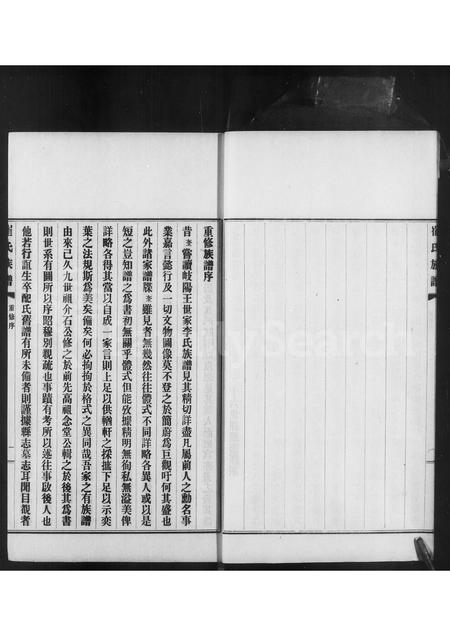 重修族譜序
昔 嘗讀岐陽王世家李氏族譜見其精切詳盡凡屬前人之勳名事
業嘉言懿行及一切文物圖像莫不登之於簡蔚為巨觀吁何其盛也
此外諸家譜牒 雖見者無幾然往往體式不同詳略各異人或以是
短之豈知譜之為書初無關乎體式但能攷據精明無徇私無溢美俾
詳略各得其當以自成一家言則上足以供輶軒之採摭下足以示奕
葉之法規斯為美矣備矣何必拘拘於格式之異同哉吾家之有族譜
由來已久九世祖介石公修之於前先高祖念堂公輯之於後其為書
則世系有圖所以序昭穆別親疏也事蹟有考所以述往事啟後人也
他若行誼生卒配氏舊譜有所未備者則謹據縣志墓志耳聞目覩者
崔氏族譜
重修序
一
崔氏族譜